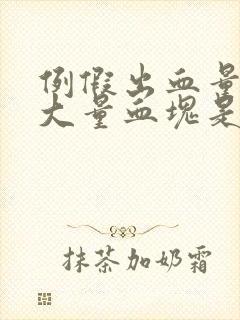 例假出血量
大量血块是
抹茶加奶霜